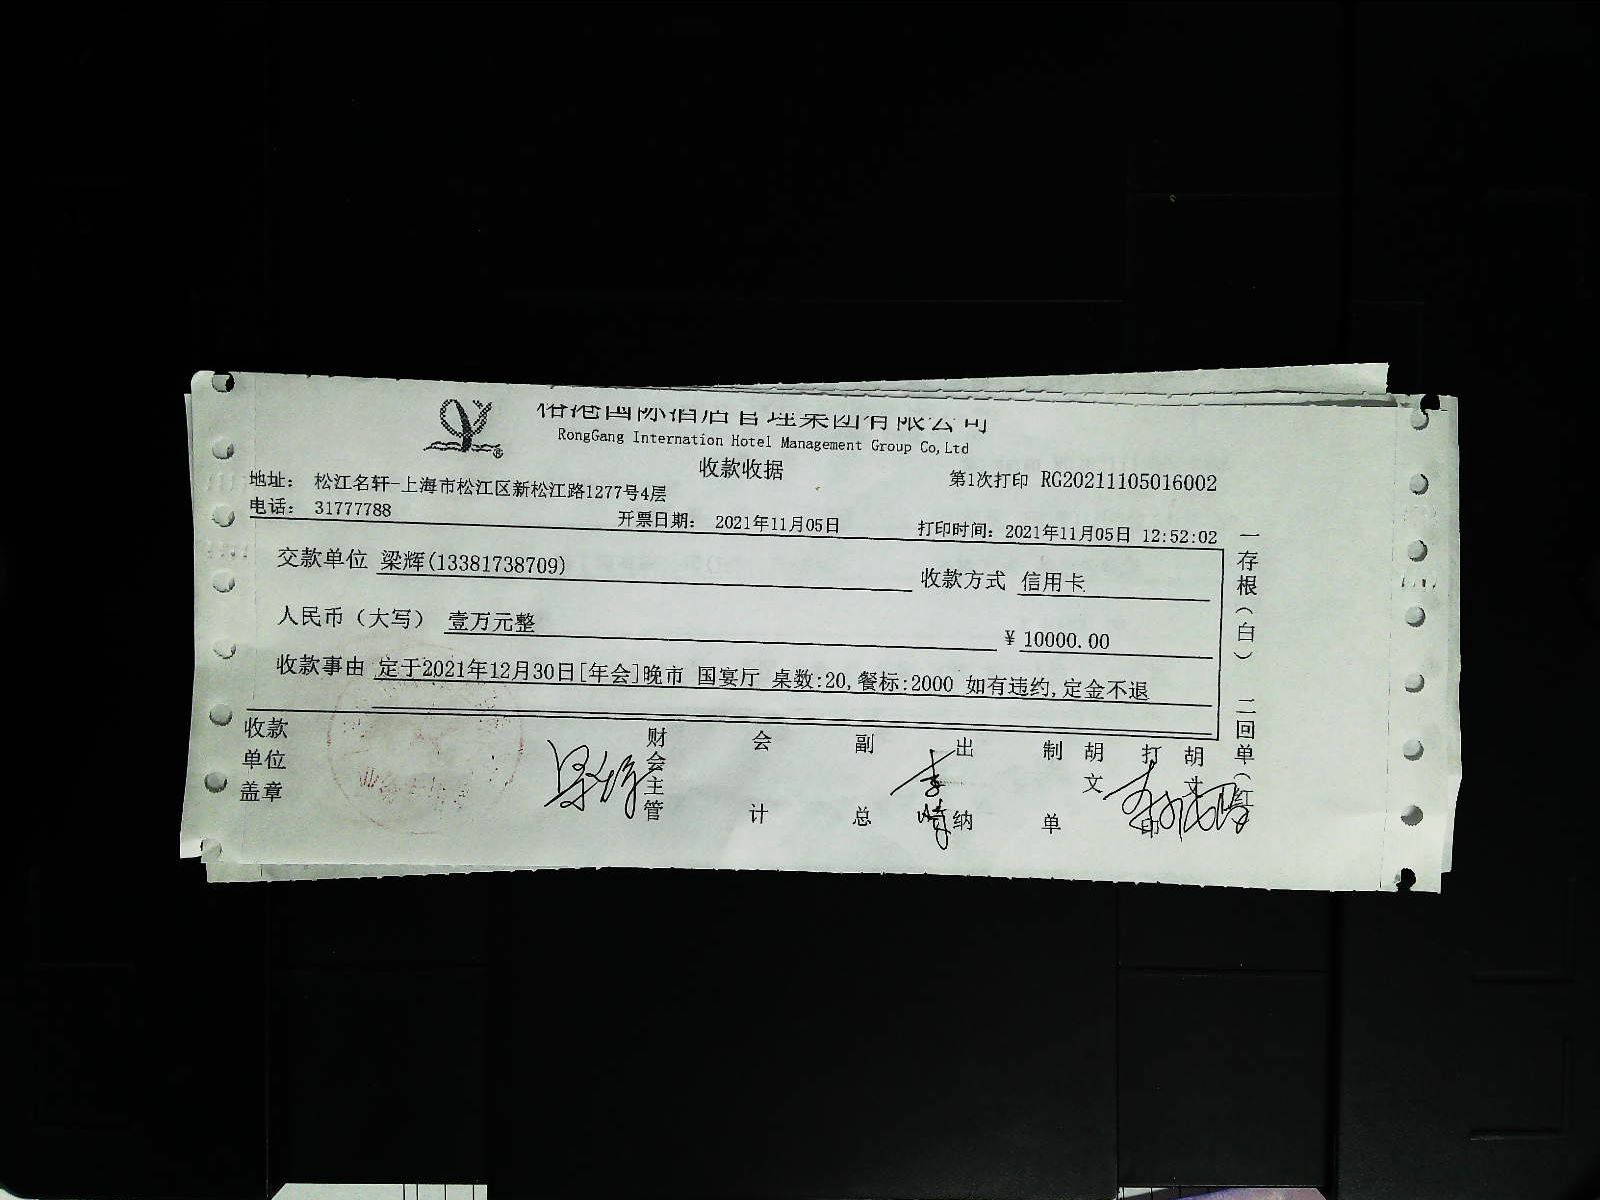 港国际酒店管理集团有限公司
RongGang Internation Hotel Management Group Co,Ltd
收款收据
地址： 松江名轩-上海市松江区新松江路1277号4层
第1次打印 RG20211105016002
电话： 31777788
开票日期： 2021年11月05日
打印时间：2021年11月05日 12:52:02
交款单位 梁辉(13381738709)
收款方式 信用卡
人民币（大写） 壹万元整
¥ 10000.00
收款事由 定于2021年12月30日[年会]晚市 国宴厅 桌数:20,餐标:2000 如有违约,定金不退
收款单位盖章
梁辉
财会主管
会计
副总
出纳
制单
胡文
打印
胡文
一存根（白） 二回单（红